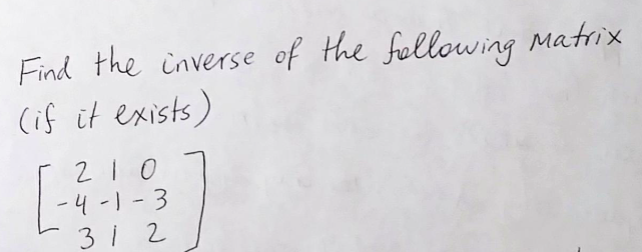 Find the inverse of the following Matrix
(if it exists)
2 1 0
-4 -1 -3
3 1 2